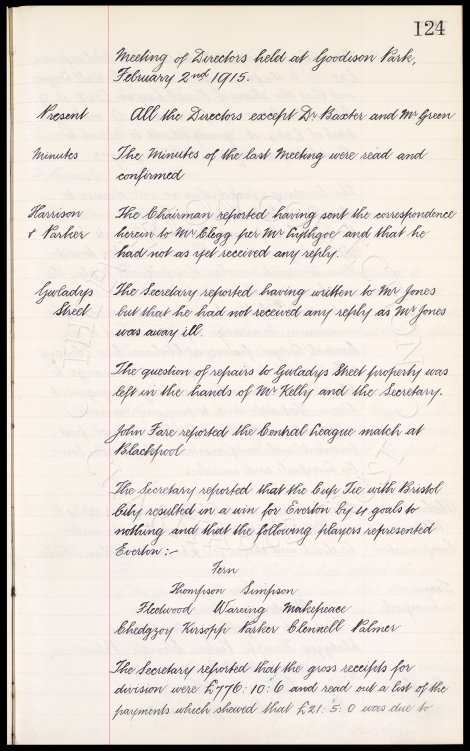 124
Meeting of Directors held at Goodison Park,
February 2nd 1915.
Present All the Directors except Dr Baxter and Mr Green
Minutes The Minutes of the last Meeting were read and
confirmed
Harrison The Chairman reported having sent the correspondence
+ Parker herein to Mr Clegg per Mr Lythgoe and that he
had not as yet received any reply.
Gwladys The Secretary reported having written to Mr Jones
Street but that he had not received any reply as Mr Jones
was away ill.
The question of repairs to Gwladys Street property was
left in the hands of Mr Kelly and the Secretary.
John Fare reported the Central League match at
Blackpool
The Secretary reported that the Cup Tie with Bristol
City resulted in a win for Everton by 4 goals to
nothing and that the following players represented
Everton :-
Fern
Thompson Simpson
Fleetwood Wareing Makepeace
Chedgzoy Kirsopp Parker Clennell Palmer
The Secretary reported that the gross receipts for
division were £776:10:6 and read out a list of the
payments which shewed that £21:5:0 was due to